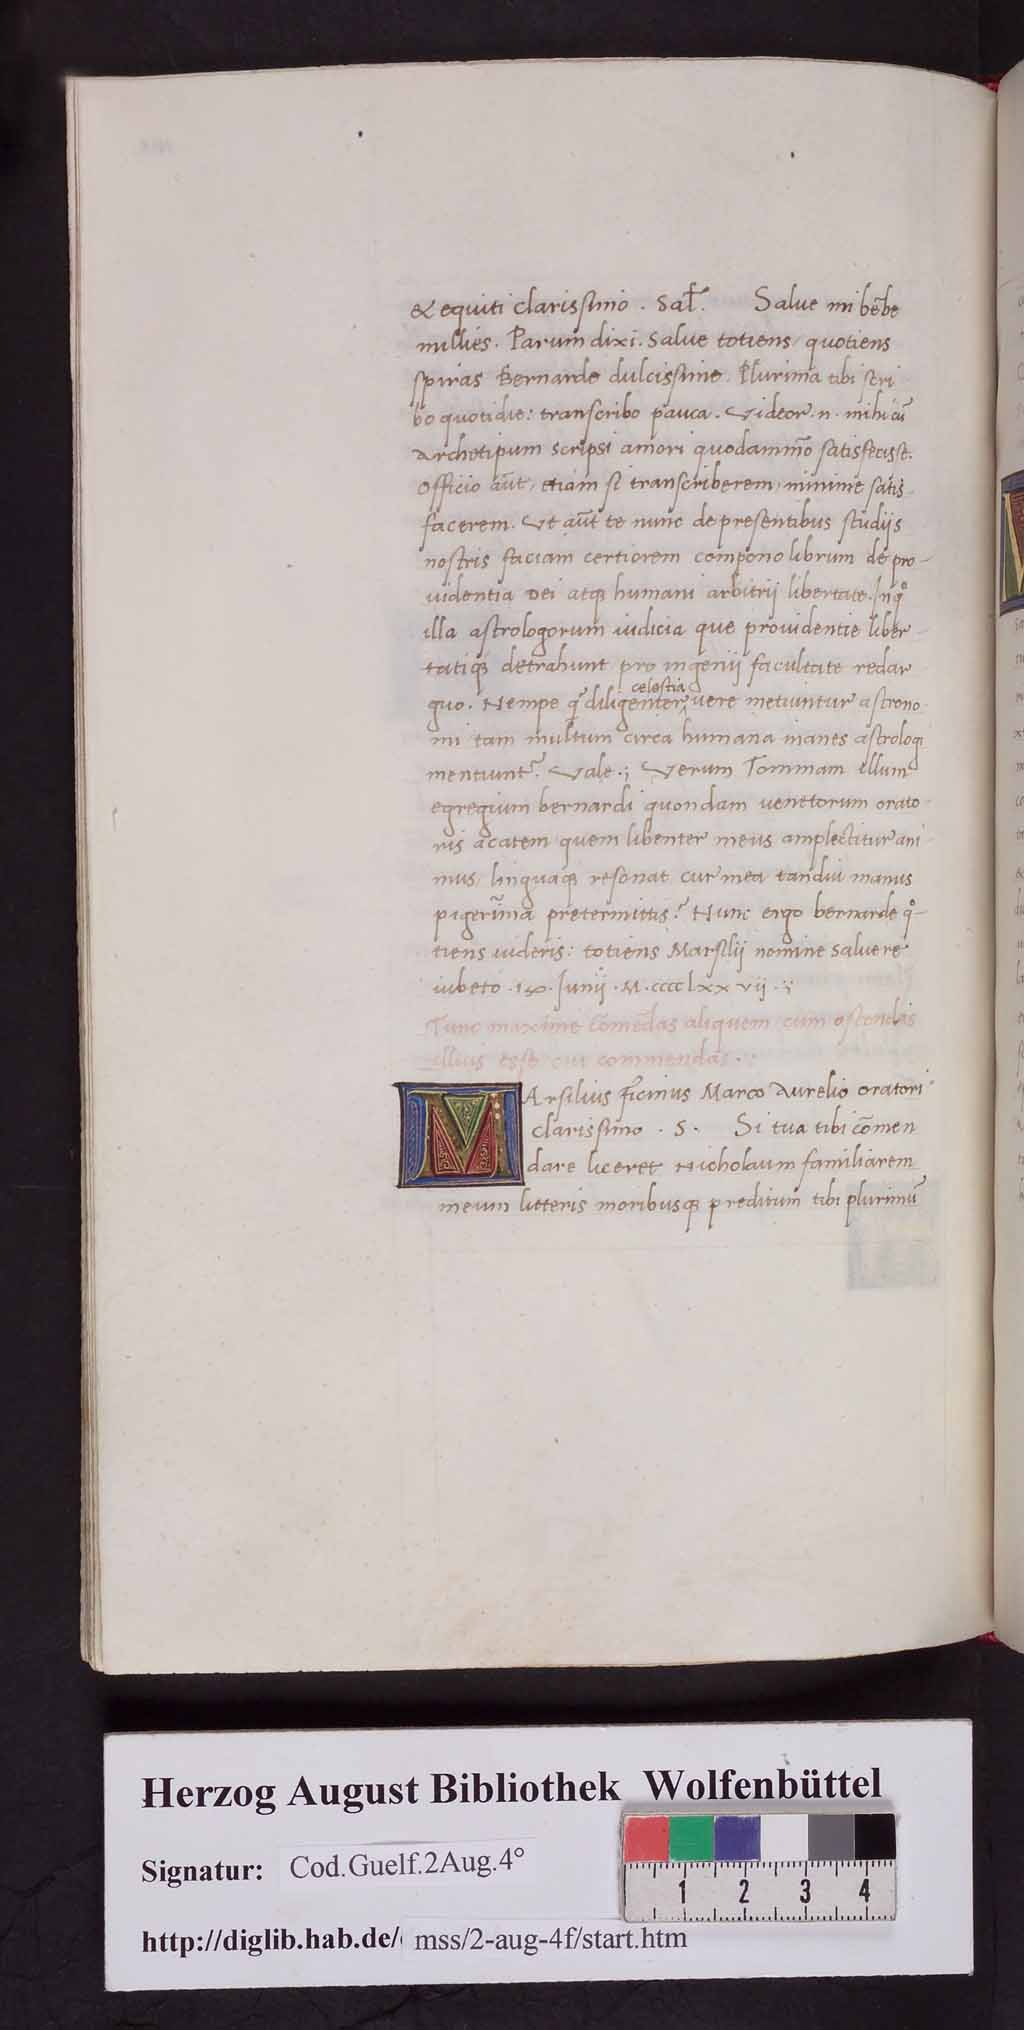 & equiti clarissimo . Sal̄. Salve mi bēbe
millies . Parum dixi . Salve totiens / quotiens
spiras Bernarde dulcissime . Plurima tibi scri
bo quotidie : transcribo pauca . Videor .n. mihi cū
Archetipum scripsi amori quodammō satisfecisse.
Officio aūt, etiam si transcriberem, minime satis
facerem. Ut aūt te nunc de presentibus studijs
nostris faciam certiorem compono librum de pro-
videntia Dei atq; humani arbitrij libertate. Inq°
illa astrologorum iudicia que providentie liber-
tatiq; detrahunt pro ingenij facultate redar
guo . Nempe q̄ diligenter celestia vere metiuntur astrono
mi tam multum circa humana inanes astrologi
mentiuntr̄. Vale .; Verum Tommam illum
egregium bernardi quondam venetorum orato
ris acatem quem libenter meus amplectitur ani
mus / linguaq; resonat cur mea tandiu manus
pigerīma pretermittis? Nunc ergo bernarde q°-
tiens videris : totiens Marsilij nomine salvere
iubeto . Junij . M . cccclxxvii .;
Tunc maxime cōmēdas aliquem cum ostendas
illius esse cui commendas .
MArsilius ficinus Marco Aurelio oratori
clarissimo . S . Si tua tibi cōmen
dare liceret Nicholaum familiarem
meum litteris moribusq; preditum tibi plurimū
Herzog August Bibliothek Wolfenbüttel
Signatur: Cod.Guelf.2Aug.4°
http://diglib.hab.de/ mss/2-aug-4f/start.htm
1 2 3 4